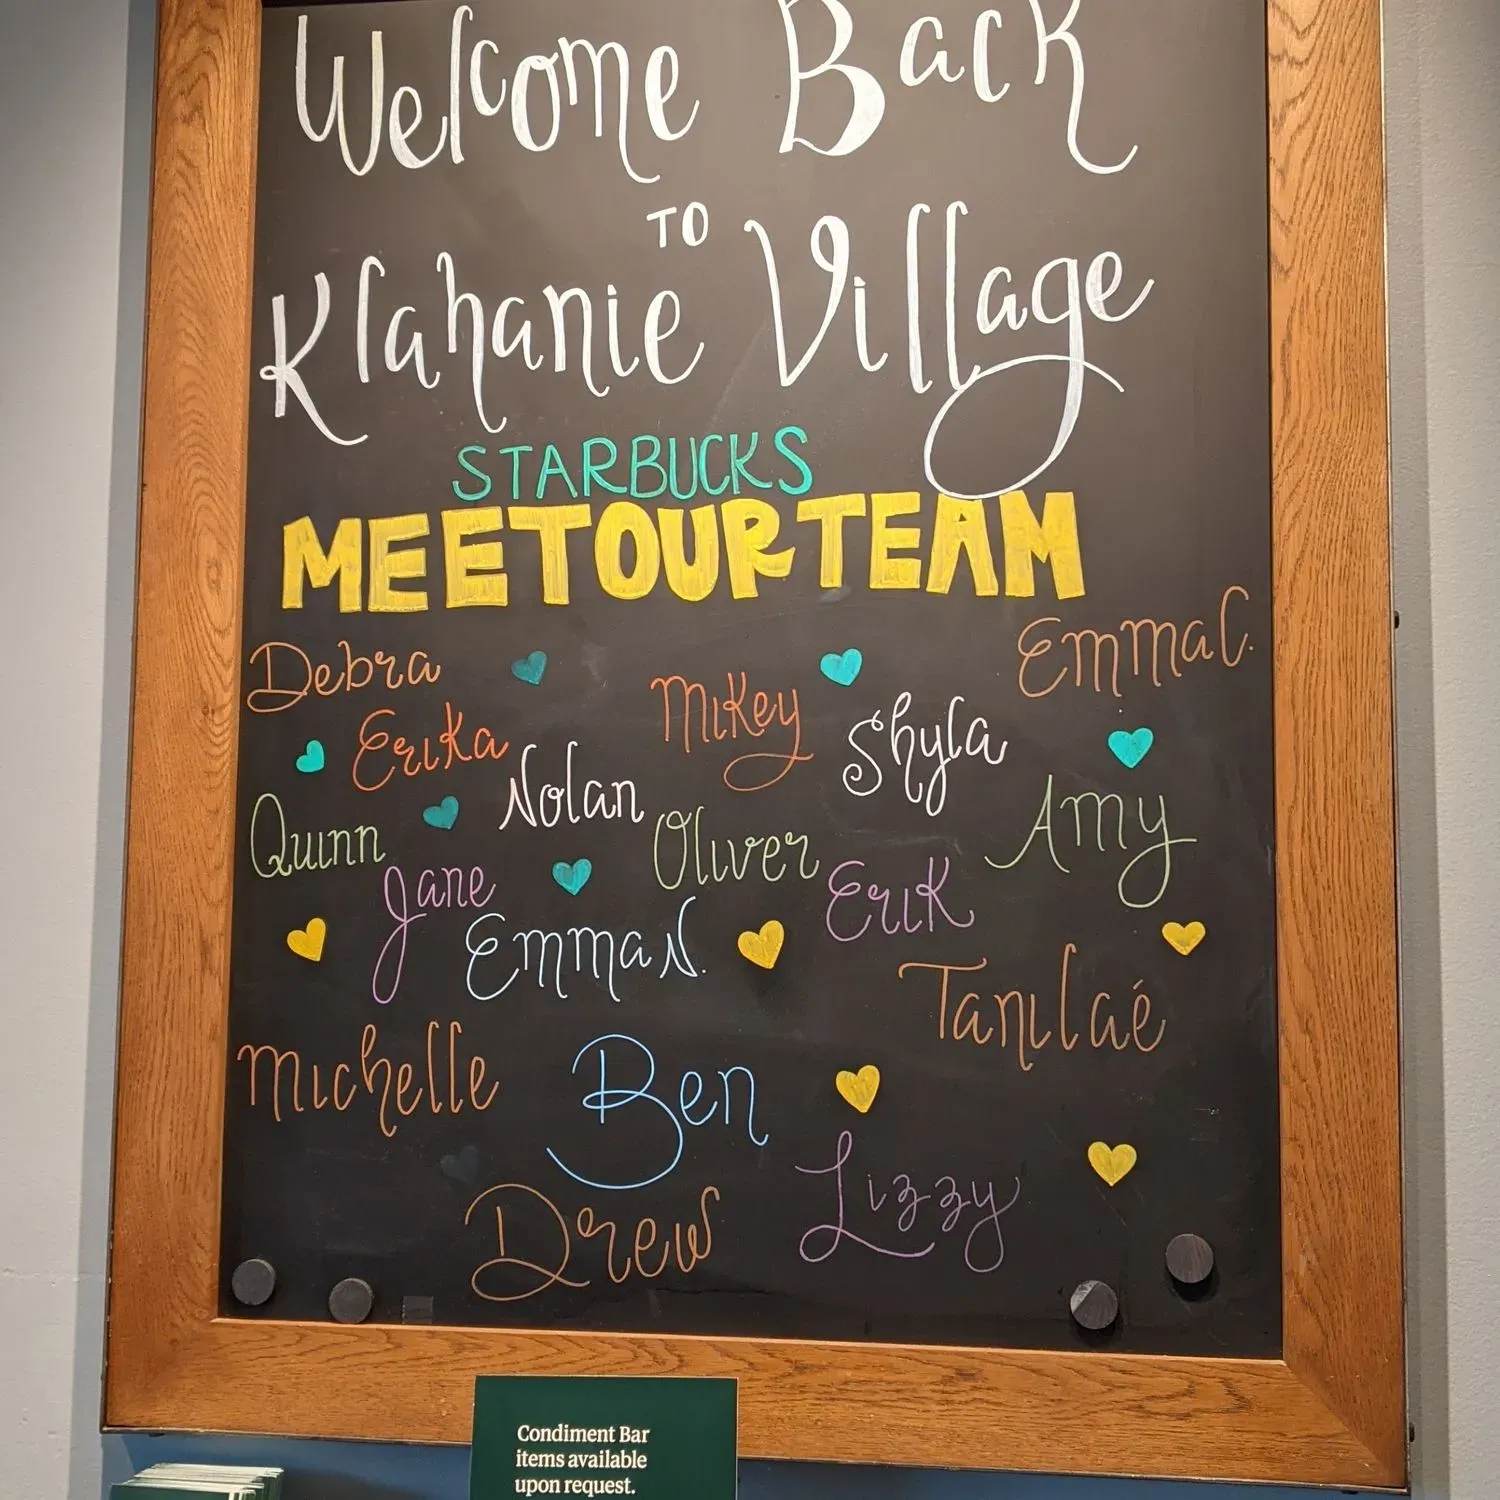 Welcome Back
TO
Klahanie Village
STARBUCKS
MEET OUR TEAM
Debra
Mikey
Emma C.
Erika
Shyla
Nolan
Quinn
Oliver
Amy
Jane
Erik
Emma N.
Tanilaé
Michelle
Ben
Lizzy
Drew
Condiment Bar
items available
upon request.